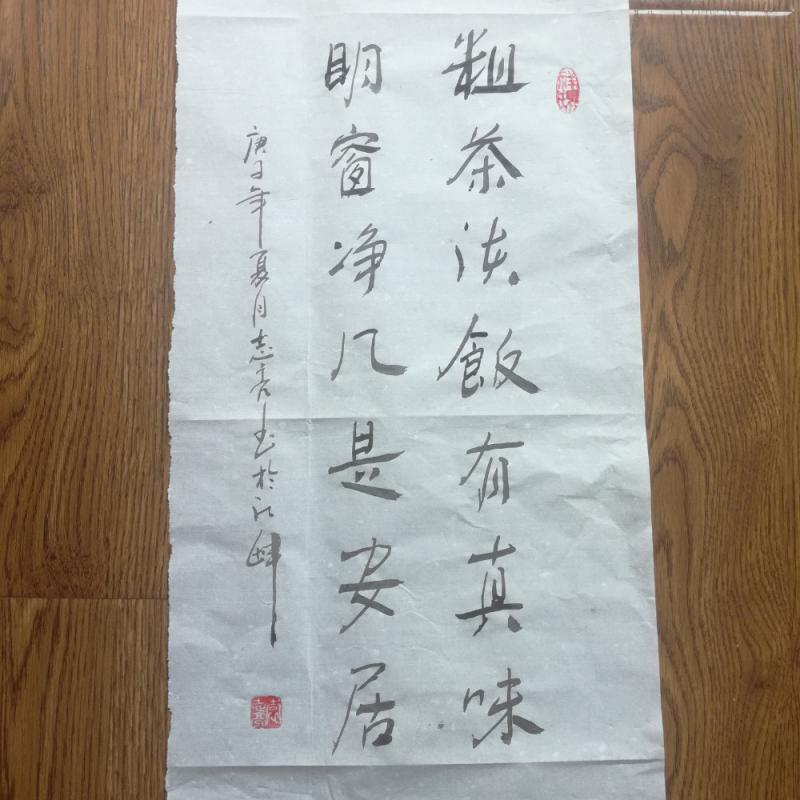 粗茶淡飯有真味
明窗净几是安居
庚子年夏月志